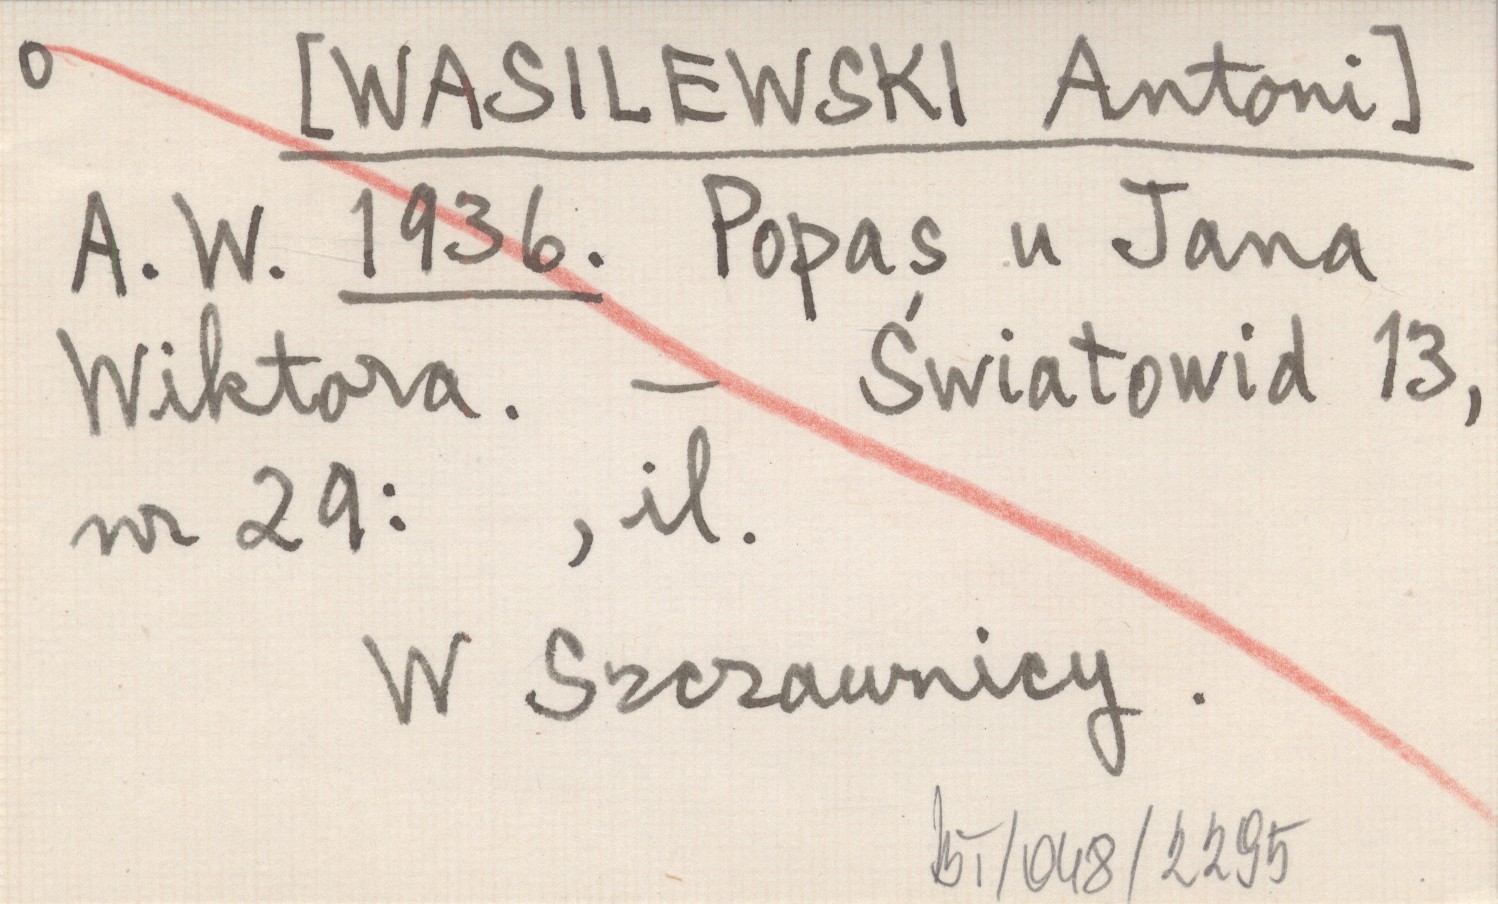 o [WASILEWSKI Antoni]
A. W. 1936. Popas u Jana
Wiktora. – Światowid 13,
nr 29: , il.
W Szczawnicy.
BT/048/2295